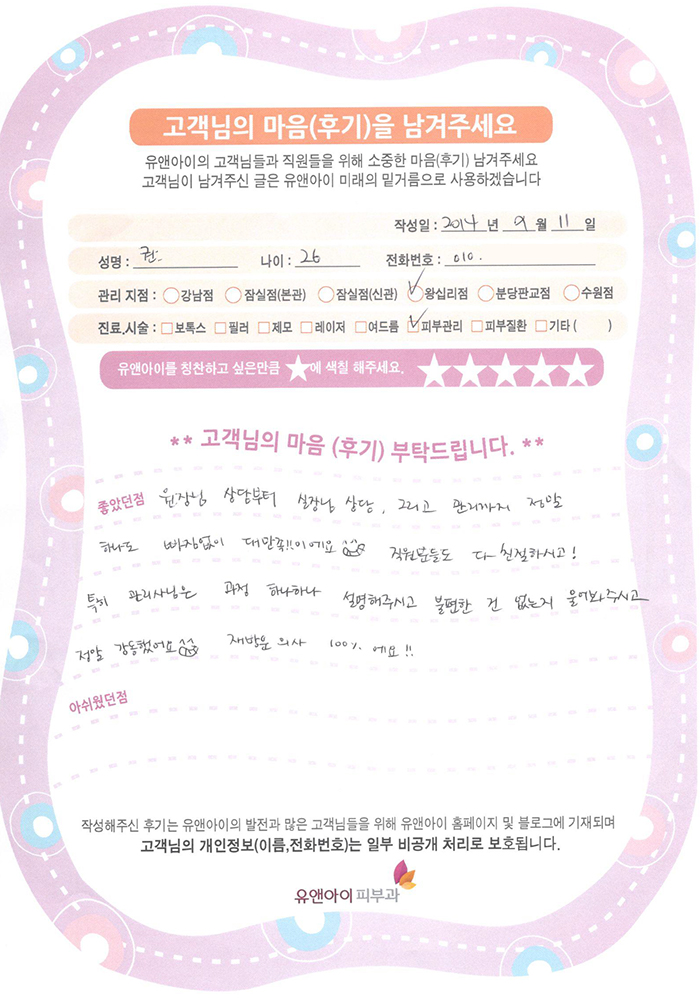 고객님의 마음(후기)을 남겨주세요
유앤아이의 고객님들과 직원들을 위해 소중한 마음(후기) 남겨주세요
고객님이 남겨주신 글은 유앤아이 미래의 밑거름으로 사용하겠습니다
작성일 : 2014 년 9 월 11 일
성명 : 권 나이 : 26 전화번호 : 010.
관리 지점 : 강남점 잠실점(본관) 잠실점(신관) 왕십리점 분당판교점 수원점
진료.시술 : 보톡스 필러 제모 레이저 여드름 피부관리 피부질환 기타 ( )
유앤아이를 칭찬하고 싶은만큼 ★에 색칠 해주세요. ★★★★★
** 고객님의 마음 (후기) 부탁드립니다. **
좋았던점 원장님 상담부터 실장님 상담, 그리고 관리까지 정말
하나도 빠짐없이 대만족!!이에요 ^^ 직원분들도 다 친절하시고!
특히 관리사님은 과정 하나하나 설명해주시고 불편한 건 없는지 물어봐주시고
정말 감동했어요 ^^ 재방문 의사 100% 에요!!
아쉬웠던점
작성해주신 후기는 유앤아이의 발전과 많은 고객님들을 위해 유앤아이 홈페이지 및 블로그에 기재되며
고객님의 개인정보(이름,전화번호)는 일부 비공개 처리로 보호됩니다.
유앤아이 피부과